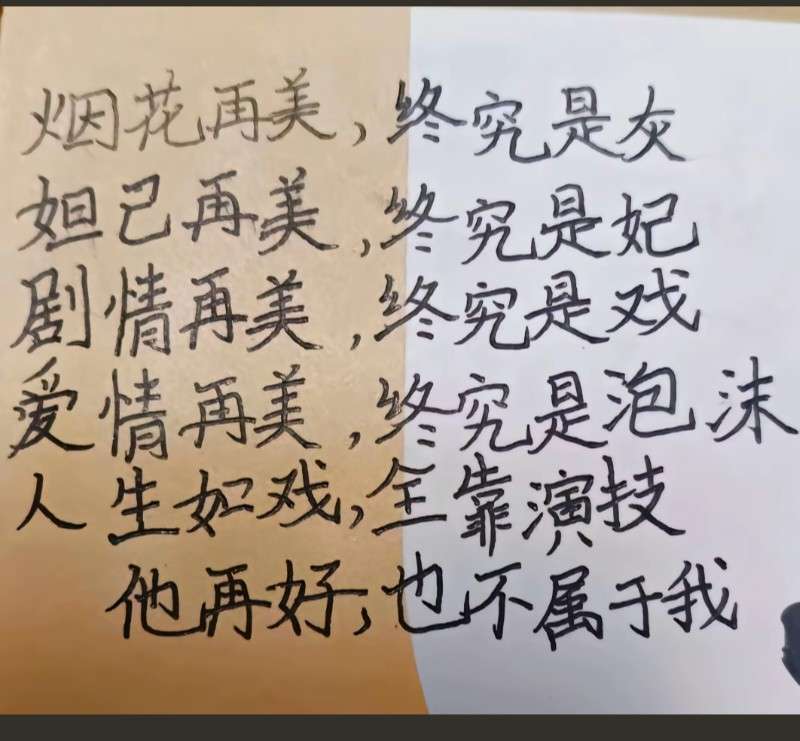 烟花再美，终究是灰
妲己再美，终究是妃
剧情再美，终究是戏
爱情再美，终究是泡沫
人生如戏，全靠演技
他再好，也不属于我